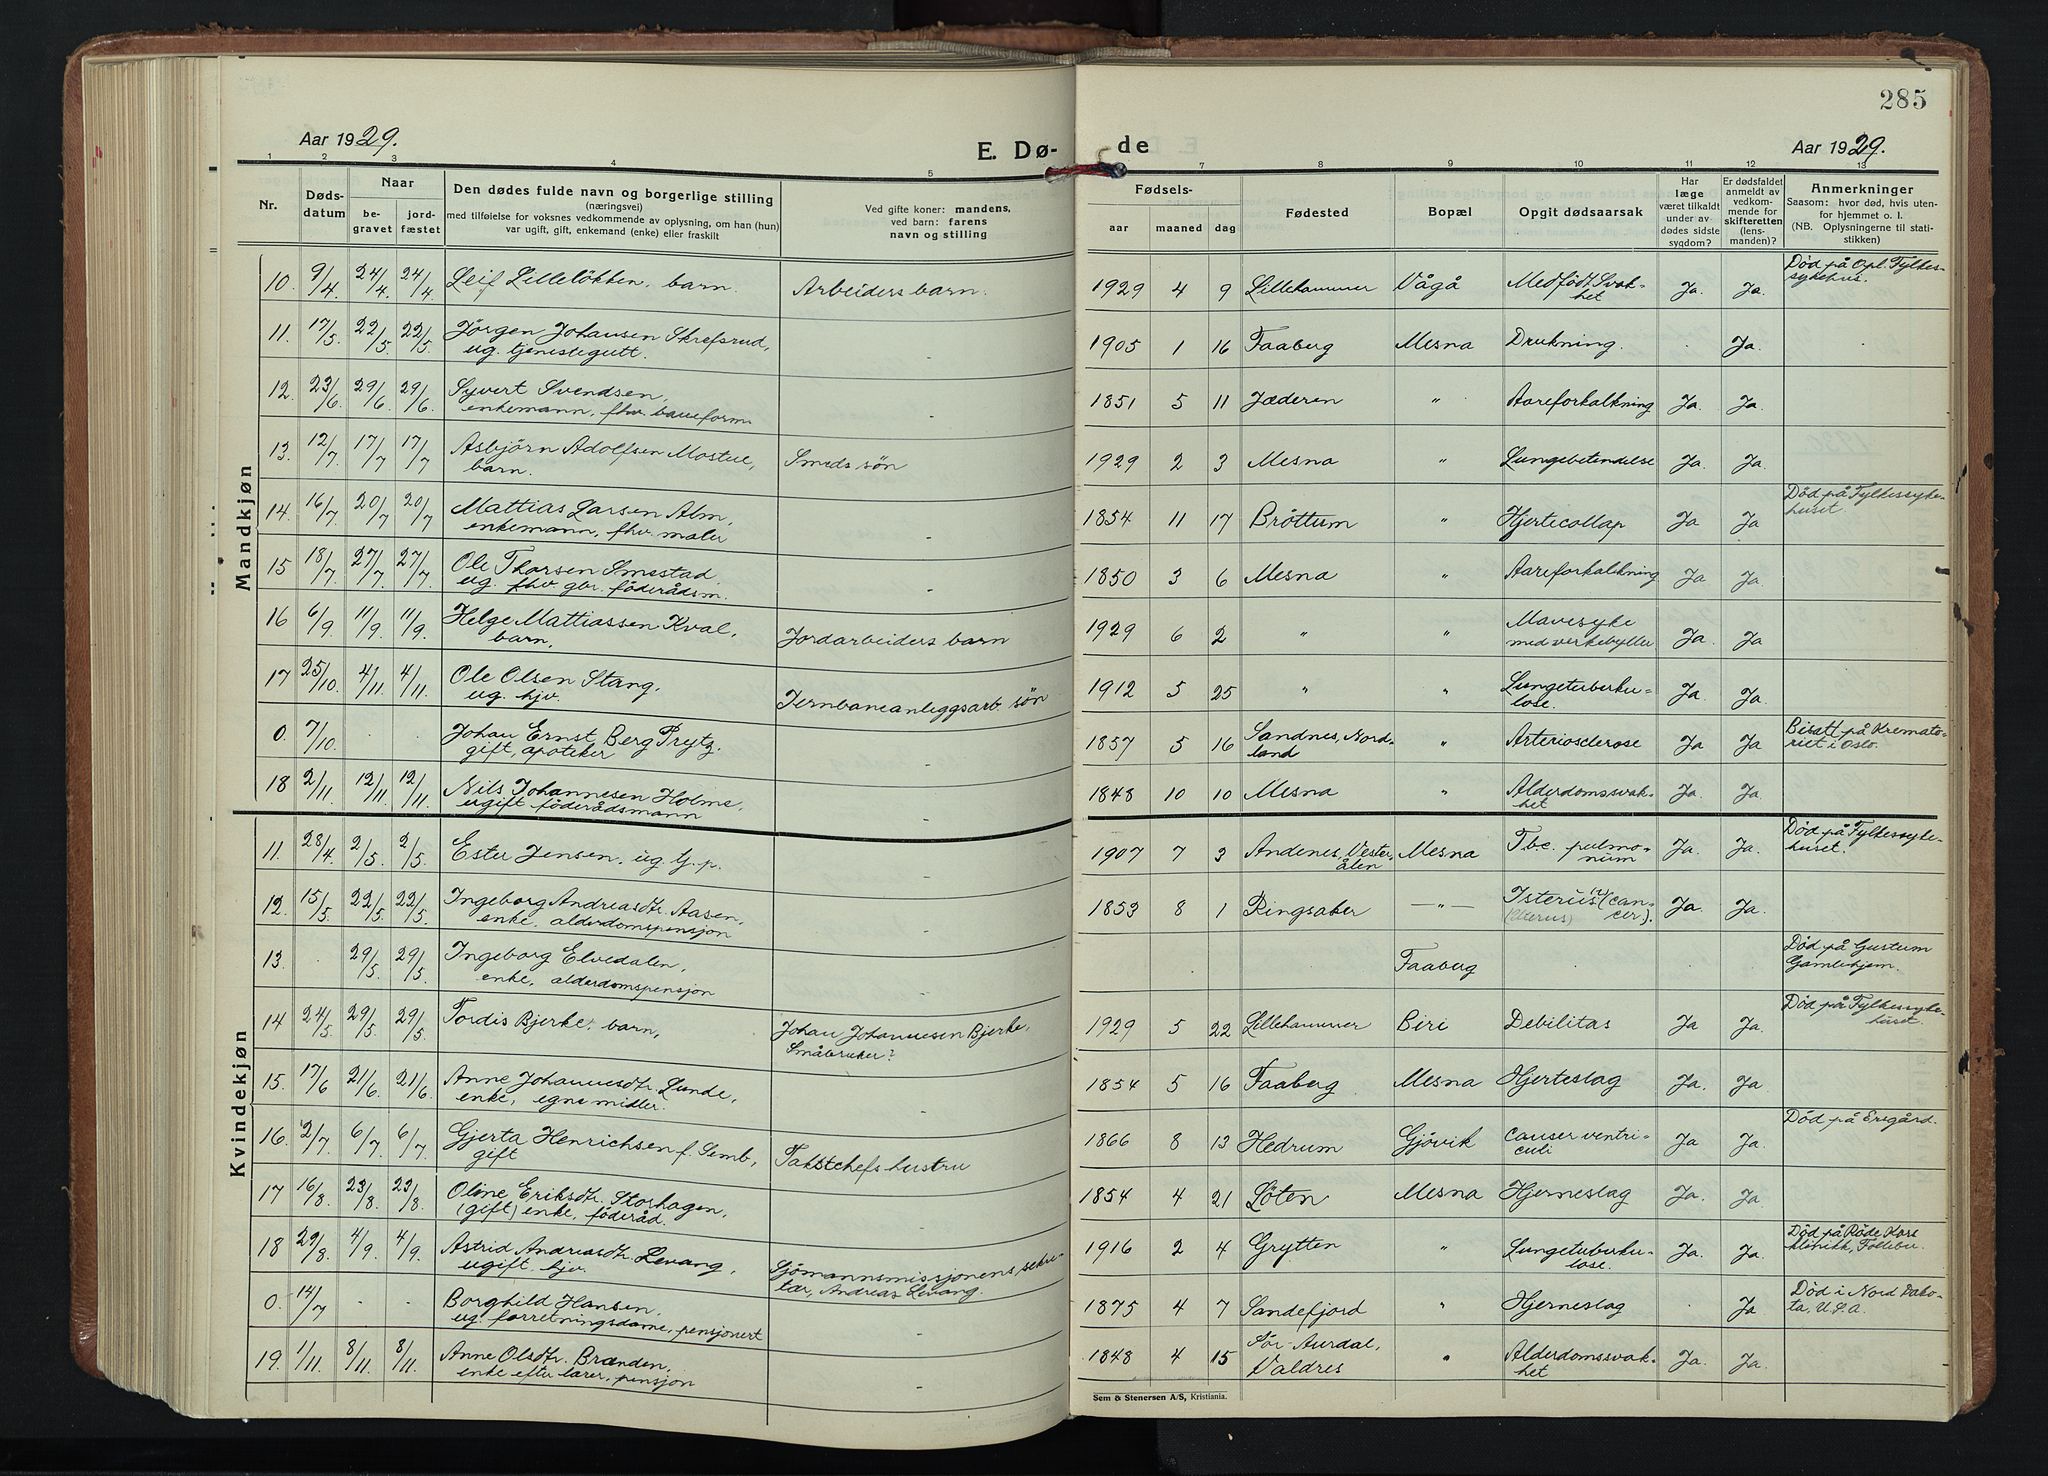 285
Aar 1929.
E. Dø-
de
Aar 1929.
1 2 3 4 5 7 8 9 10 11 12 13
Nr.
Døds-
datum
Naar
be-
gravet
jord-
fæstet
Den dødes fulde navn og borgerlige stilling
(næringsvei)
med tilføielse for voksnes vedkommende av oplysning, om han (hun)
var ugift, gift, enkemand (enke) eller fraskilt
Ved gifte koner: mandens,
ved barn: farens
navn og stilling
Fødsels-
aar maaned dag
Fødested
Bopæl
Opgit dødsaarsak
Har
læge
været tilkaldt
under av-
dødes sidste
sygdom?
Er dødsfaldet
anmeldt av
vedkom-
mende for
skifteretten
(lens-
manden)?
Anmerkninger
Saasom: hvor død, hvis uten-
for hjemmet o. l.
(NB. Oplysningerne til stati-
stikken)
Mandkjøn
10 9/4 24/4. 24/4 Leif Lilleløkken, barn. Arbeiders barn. 1929 4 9 Lillehammer Vågå Medfødt Svak-
het Ja. Ja. Død på Opl. Fylkes-
sykehus.
11. 17/5 22/5. 22/5. Jørgen Johansen Skrefsrud,
ug. tjenestegutt. - 1905 1 16 Faaberg Mesna Drukning. . Ja. .
12. 23/6 29/6 29/6. Syvert Svendsen,
enkemann, fhv. baneform. - 1851 5 11 Jæderen " Aareforkalkning Ja. Ja.
13. 12/7 17/7 17/7 Asbjørn Adolfsen Mostue,
barn. Smeds søn 1929 2 3 Mesna " Lungebetendelse Ja. Ja.
14. 16/7 20/7 20/7 Mattias Larsen Alm,
enkemann, fhv. maler - 1854 11 17 Brøttum " Hjertecollap Ja Ja Død på Fylkessyke-
huset
15 18/7 27/7 27/7. Ole Thorsen Smestad.
ug. fhv. gbr. føderådsm. - 1850 3 6 Mesna " Aareforkalkning Ja Ja.
16 6/9 11/9. 11/9. Helge Mattiassen Kval,
barn, Jordarbeiders barn 1929 6 2 " " Mavesyke
med verkebyller Ja. Ja
17 25/10. 4/11 4/11. Ole Olsen Stang,
ug. hjv. Jernbaneanleggsarb. søn 1912 5 25 " " Lungetuberku-
lose. Ja Ja.
0. 7/10 . . Johan Ernst Berg Prytz.
gift, apoteker - 1857 5 16 Sandnes, Nord-
land " Arteriosclerose Ja Ja Bisatt på Kremato-
riet i Oslo.
18 2/11 12/11 12/11. Nils Johannesen Holme,
ugift føderådsmann - 1848 10 10 Mesna " Alderdomssvak-
het Ja. Ja.
Kvindekjøn
11. 28/4 2/5. 2/5. Ester Jensen, ug. - 1907 7 3 Andenes, Vester-
ålen Mesna Tbc. pulmo-
num Ja. Ja. Død på Fylkessyke-
huset.
12. 15/5. 22/5 22/5. Ingeborg Andreasdtr. Aasen,
enke, alderdomspensjon - 1853 8 1 Ringsaker -"- Isterus (?) (can-
(Icterus) cer). Ja. Ja.
13. . 29/5. 29/5 Ingeborg Elvedalen,
enke, alderdomspensjon - . . . . Faaberg . . . Død på
Gamlehjem.
14 24/5. 29/5. 29/5 Tordis Bjerke, barn, Johan Johannesen Bjerke,
Småbruker? 1929 5 22 Lillehammer Biri Debilitas Ja Ja. Død på Fylkessyke-
huset.
15. 17/6 21/6 21/6 Anne Johannesdtr. Lunde,
enke, egne midler. - 1854 5 16 Faaberg Mesna Hjerteslag Ja. Ja
16. 2/7 6/7. 6/7 Gjerta Henrichsen f. Semb,
gift Takstchefs hustru 1866 8 13 Hedrum Gjøvik Cancer ventri-
culi Ja Ja. Død på Ersgård.
17 16/8 23/8. 23/8 Oline Eriksdtr. Storhagen,
(gift) enke, føderåd. - 1854 4 21 Løten Mesna Hjerneslag Ja. Ja.
18 29/8. 4/9. 4/9 Astrid Andreasdtr. Levang,
ugift. hjv. Sjømannsmissjonens sekre-
tær, Andreas Levang. 1916 2 4 Grytten " Lungetuberku-
lose. Ja. Ja. Død på Røde Kors
klinikk, Follebu.
0. 14/7 . . Borghild Hansen,
ug. forretningsdame, pensjonert - 1875 4 7 Sandefjord " Hjerneslag . Ja Død i Nord Dako-
ta, U.S.A.
19. 1/11. 8/11. 8/11. Anne Olsdtr. Brænden,
enke efter lærer, pensjon - 1848 4 15 Sør-Aurdal,
Valdres " Alderdomssvak-
het Ja. Ja.
Sem & Stenersen A/S, Kristiania.